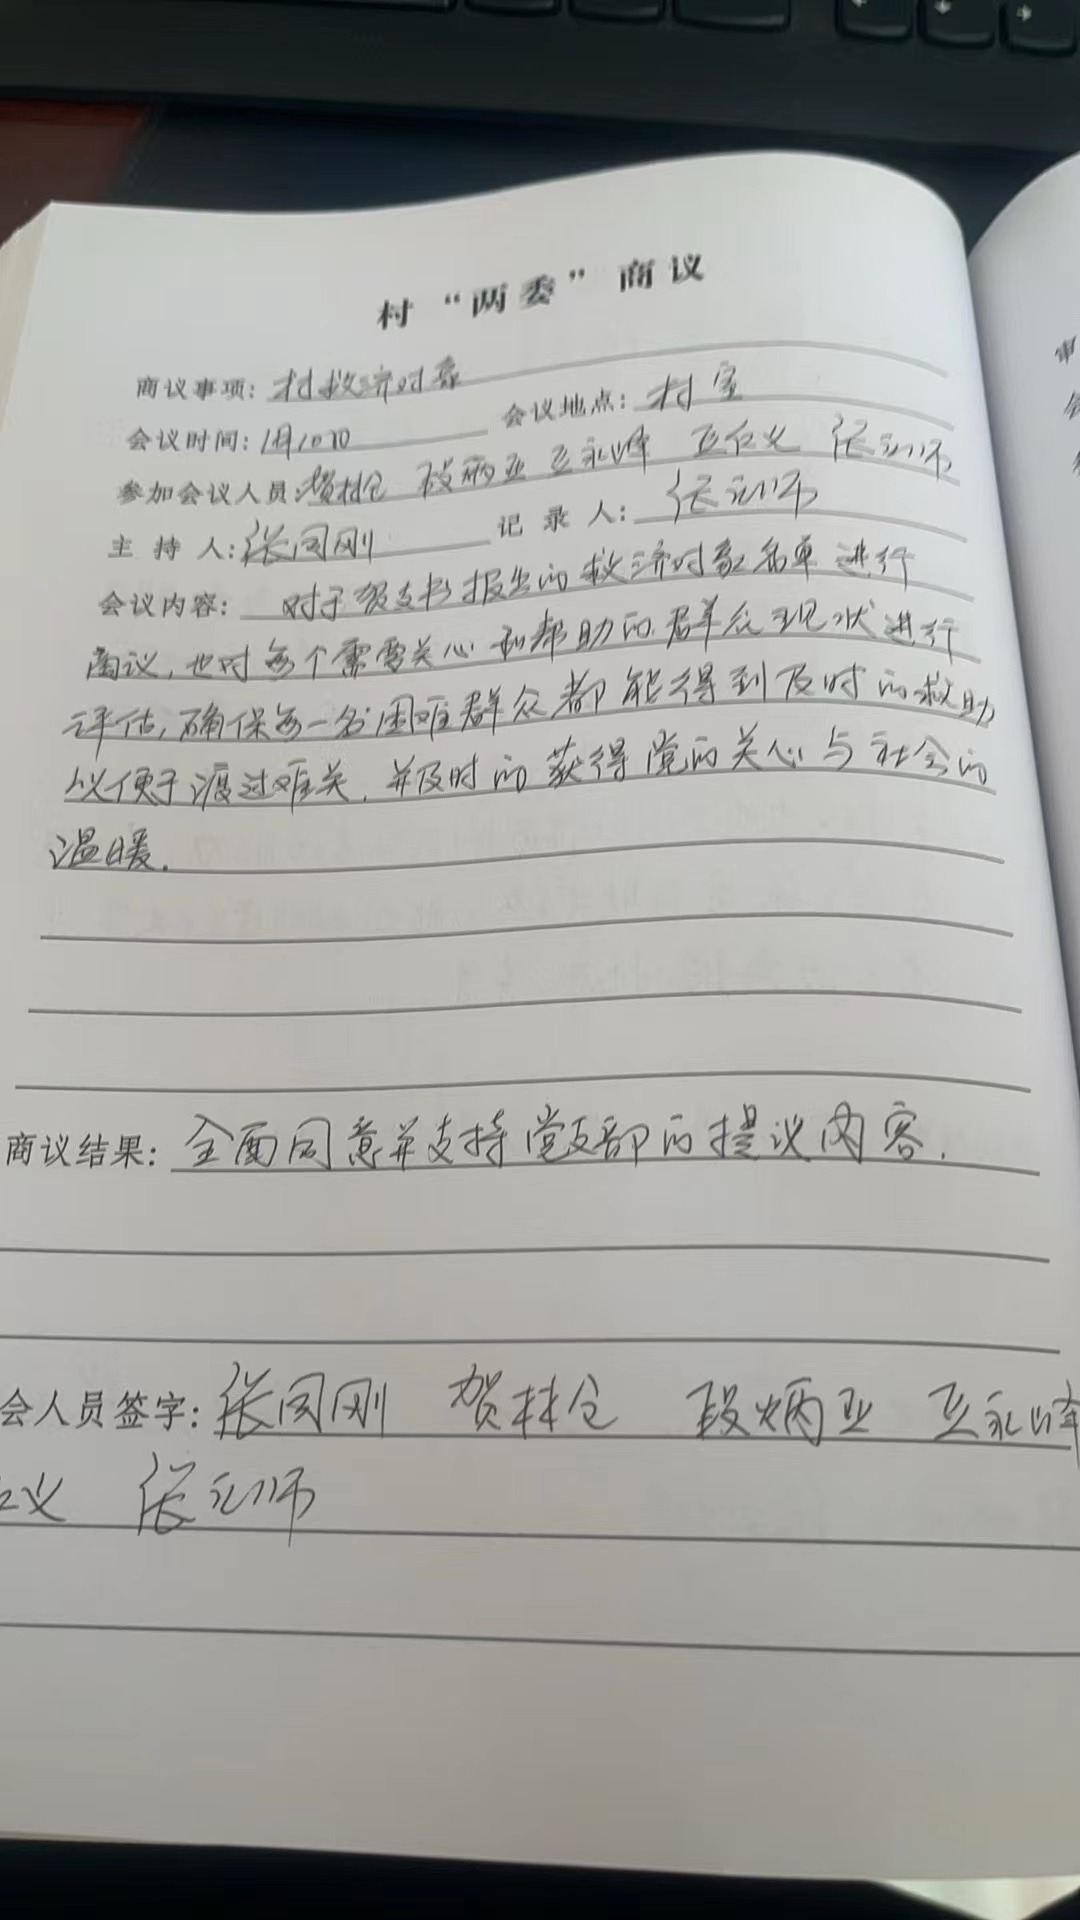 村“两委”商议
商议事项：村救济对象
会议时间：1月10日 会议地点：村室
参加会议人员：贺林仓 段炳亚 王永峰 王红义 张
主持人：张同刚 记录人：张
会议内容：对于张支书报出的救济对象名单进行
商议，也对每个需要关心和帮助的群众现状进行
评估，确保每一名困难群众都能得到及时的救助
以便于渡过难关，并及时的获得党的关心与社会的
温暖.
商议结果：全面同意并支持党支部的提议内容.
会人员签字：张同刚 贺林仓 段炳亚 王永峰
红义 张
审